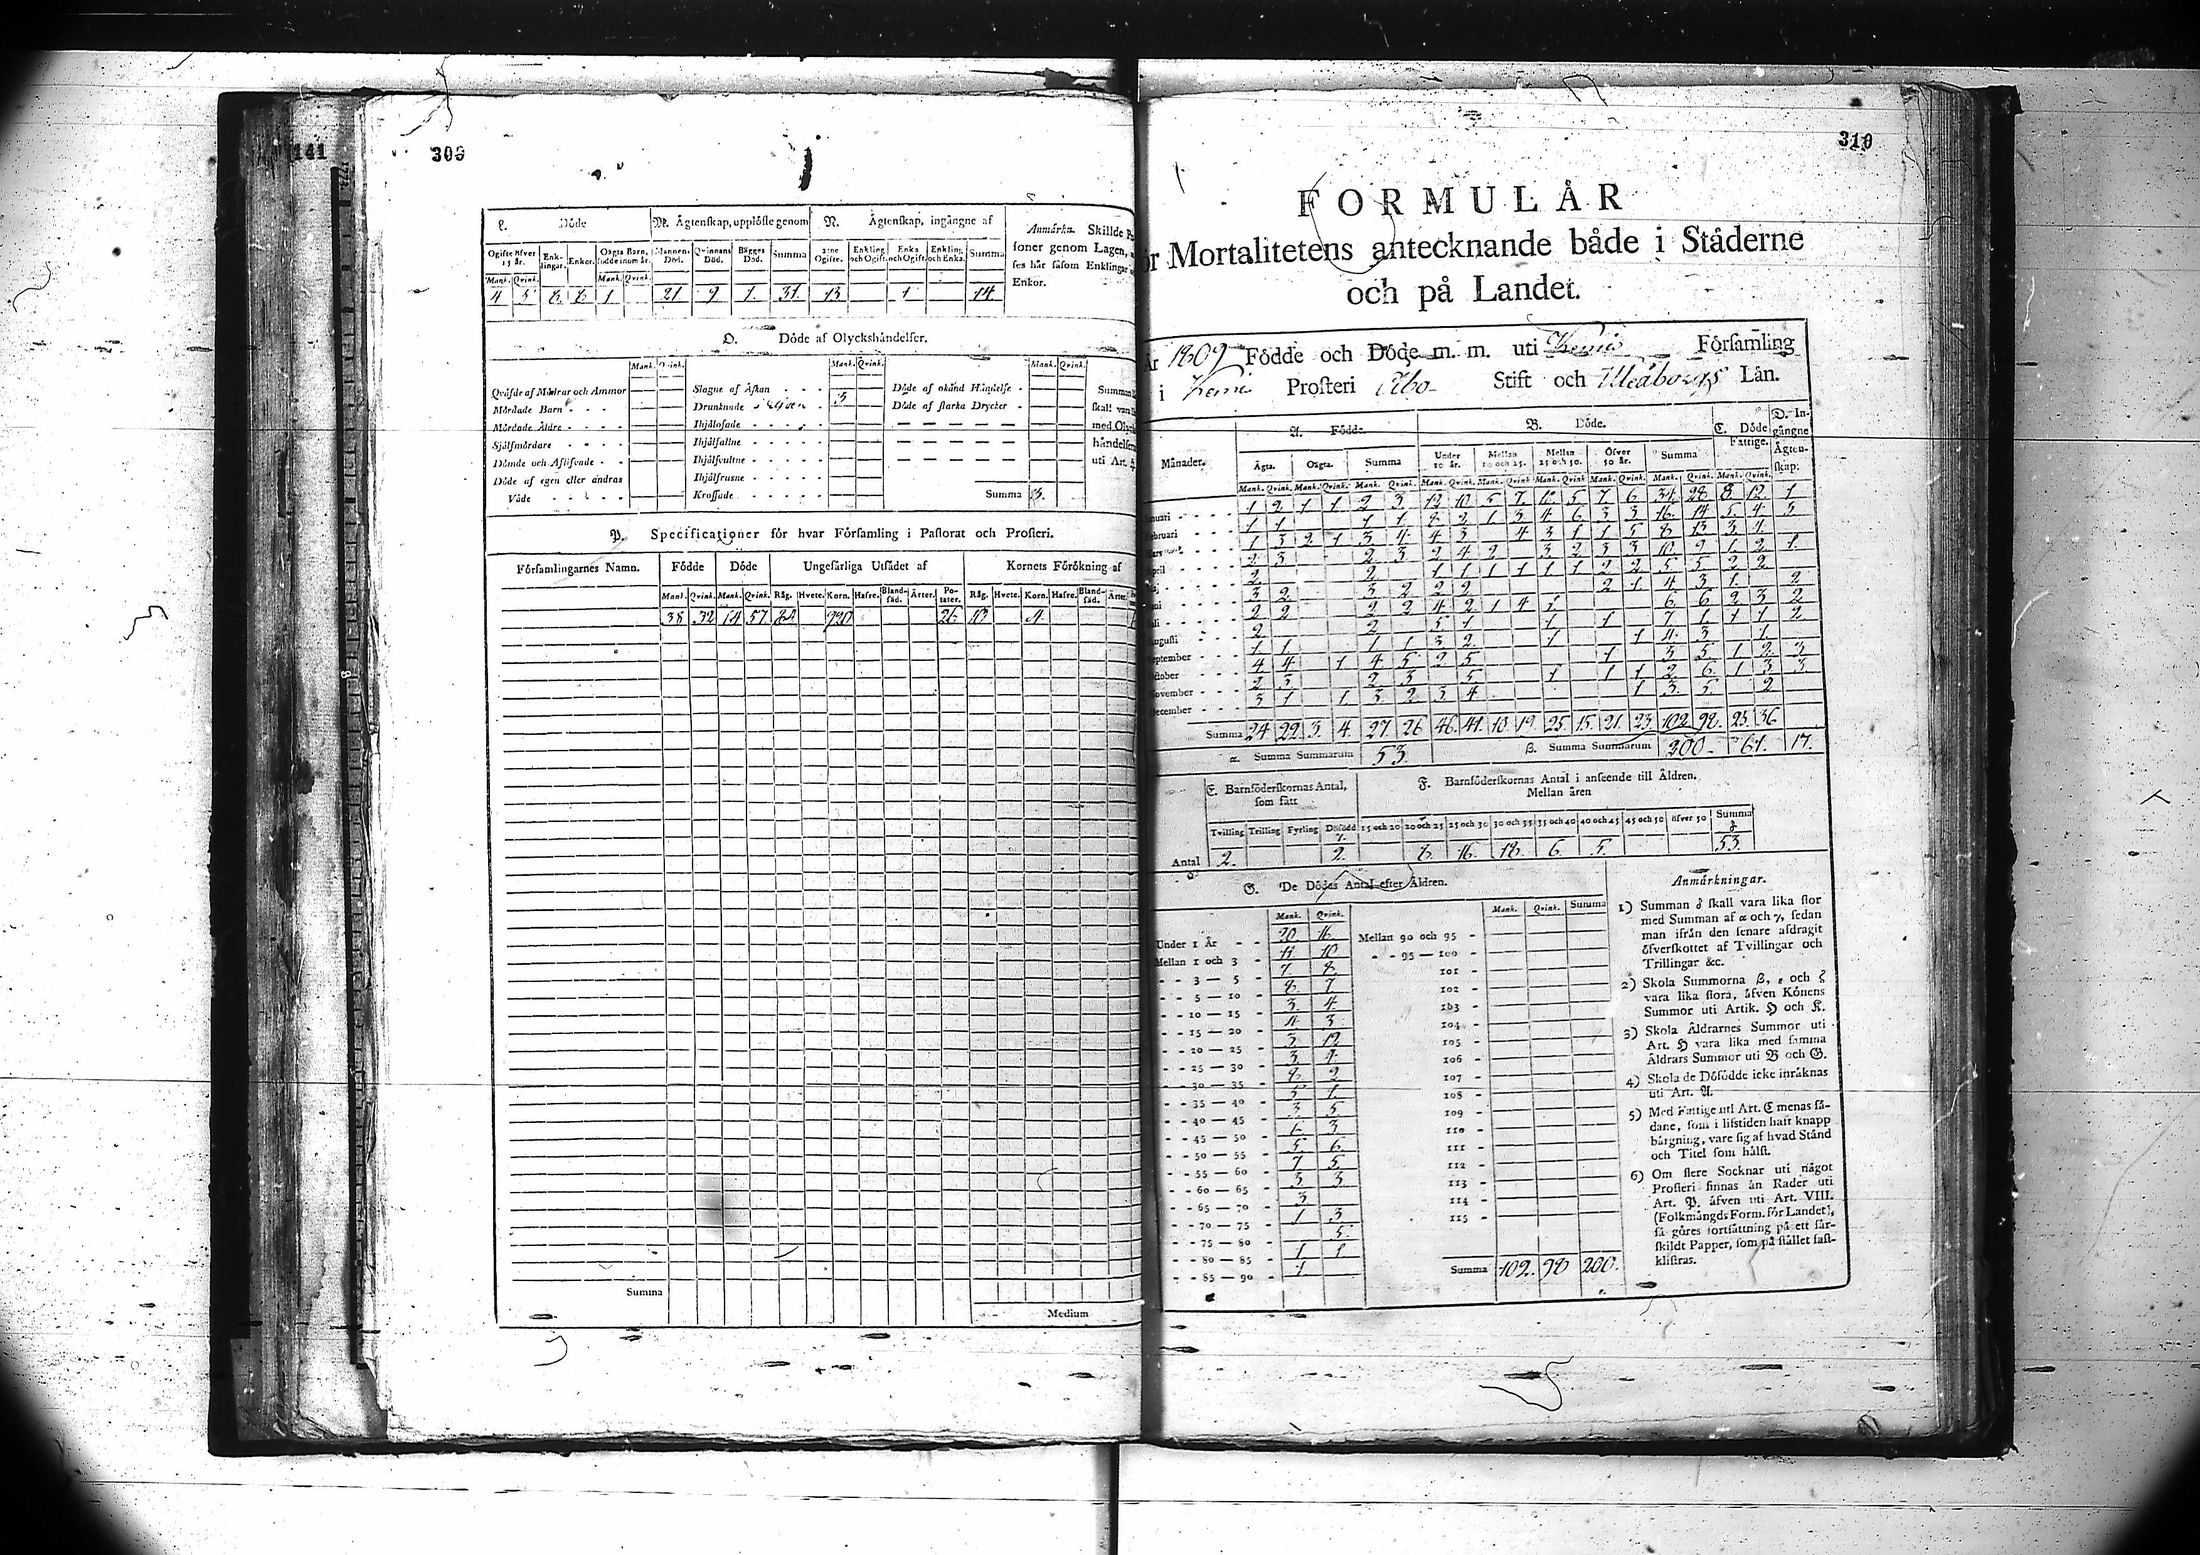 141
309
L. Döde
M. Ägtenskap, upplöste genom
N. Ägtenskap, ingångne af
Anmärkn. Skillde
soner genom Lagen,
ses här såsom Enklingar
Enkor.
Ogifte öfver 15 år.
Enklingar.
Enkor.
Oägta Barn, födde inom år.
Mannens Död.
Qvinnans Död.
Bägges Död.
Summa
Ogifte.
Enkling och Ogift.
Enka och Ogift.
Enkling och Enka.
Summa
Mank. Qvink. Mank. Qvink.
4 5 8 8 1 21 9 1 31 13 1 14
O. Döde af Olyckshändelser.
Mank. Qvink. Mank. Qvink. Mank. Qvink.
Qväfde af Mödrar och Ammor
Mördade Barn
Mördade Äldre
Sjålfmördare
Dömde och Aflifvade
Döde af egen eller andras
Våde
Slagne af Åskan
Drunknade 3
Ihjälsofade
Ihjälfallne
Ihjälsvultne
Ihjälfrusne
Krossade
Döde af okänd Händelse
Döde af starka Drycker
Summa 3.
Summan
skall vara
med Olycks
händelserna
uti Art.
P. Specificationer för hvar Församling i Pastorat och Prosteri.
Församlingarnes Namn. Födde Döde Ungefärliga Utsädet af Kornets Förökning af
Mank. Qvink. Mank. Qvink. Råg. Hvete. Korn. Hafre. Blandsäd. Ärter. Potater. Råg. Hvete. Korn. Hafre. Blandsäd. Ärter.
38 32 64 57 920 26
Summa
Medium
310
FORMULÄR
ör Mortalitetens antecknande både i Städerne
och på Landet.
År 1809 Födde och Döde m. m. uti Kemi Församling
i Kemi Prosteri Åbo Stift och Uleåborgs Län.
Månader.
A. Födde.
B. Döde.
C. Döde Fattige.
D. Ingångne Ägtenskap.
Ägta. Oägta. Summa Under 10 år. Mellan 10 och 25. Mellan 25 och 50. Öfver 50 år. Summa
Mank. Qvink. Mank. Qvink. Mank. Qvink. Mank. Qvink. Mank. Qvink. Mank. Qvink. Mank. Qvink. Mank. Qvink. Mank. Qvink.
nuari 1 2 1 1 2 3 12 10 5 7 12 5 7 6 34 28 8 12 1
ebruari 1 1 1 1 8 2 1 3 4 6 3 3 16 14 5 4 3
ars 1 3 2 1 3 4 4 3 4 3 1 1 5 8 13 3 1
pril 2 3 2 3 2 4 2 3 2 3 3 10 9 1 2 1
aj 2 2 1 1 1 1 1 1 2 2 5 5 2 2
uni 3 2 3 2 2 2 2 1 4 3 1 2
uli 2 2 2 2 4 2 1 4 1 6 6 2 3 2
ugusti 2 2 5 1 1 1 7 1 1 1 2
eptember 1 1 1 1 3 2 1 1 4 3 1
ctober 4 4 1 4 5 2 5 1 3 5 1 2 3
ovember 2 3 2 3 5 1 1 1 2 6 1 3 3
ecember 3 1 1 3 2 3 4 1 3 5 2
Summa 24 22 3 4 27 26 46 41 10 19 25 15 21 23 102 98 25 36
α. Summa Summarum 53
β. Summa Summarum 200 61 17
E. Barnföderskornas Antal, som fått
F. Barnföderskornas Antal i anseende till Åldren.
Mellan åren
Tvilling Trilling Fyrling Dödfödd 15 och 20 20 och 25 25 och 30 30 och 35 35 och 40 40 och 45 45 och 50 öfver 50 Summa
Antal 2. 2. 8. 16. 18. 6 5. 53.
G. De Dödas Antal efter Åldren.
Mank. Qvink. Mank. Qvink. Summa
Under 1 År 20 16
Mellan 1 och 3 11 10
3 — 5 7 8
5 — 10 8 7
10 — 15 3 4
15 — 20 4 3
20 — 25 3 12
25 — 30 3 4
30 — 35 8 2
35 — 40 5 1
40 — 45 3 5
45 — 50 6 3
50 — 55 5 6
55 — 60 7 5
60 — 65 3 3
65 — 70 3
70 — 75 1 3
75 — 80 5
80 — 85 1 1
85 — 90 1
Mellan 90 och 95
95 — 100
101
102
103
104
105
106
107
108
109
110
111
112
113
114
115
Summa 102 98 200
Anmärkningar.
1) Summan δ skall vara lika stor
med Summan af α och γ, sedan
man ifrån den senare afdragit
öfverskottet af Tvillingar och
Trillingar &c.
2) Skola Summorna β, ε och ζ
vara lika stora, äfven Könens
Summor uti Artik. H och K.
3) Skola Åldrarnes Summor uti
Art. H vara lika med samma
Åldrars Summor uti B och G.
4) Skola de Dödfödde icke inräknas
uti Art. A.
5) Med Fattige uti Art. C menas så-
dane, som i lifstiden haft knapp
bärgning, vare sig af hvad Stånd
och Titel som hälst.
6) Om flere Socknar uti något
Prosteri finnas än Rader uti
Art. P. äfven uti Art. VIII.
(Folkmängds Form. för Landet),
så göres fortsättning på ett sär-
skildt Papper, som på stället fast-
klistras.